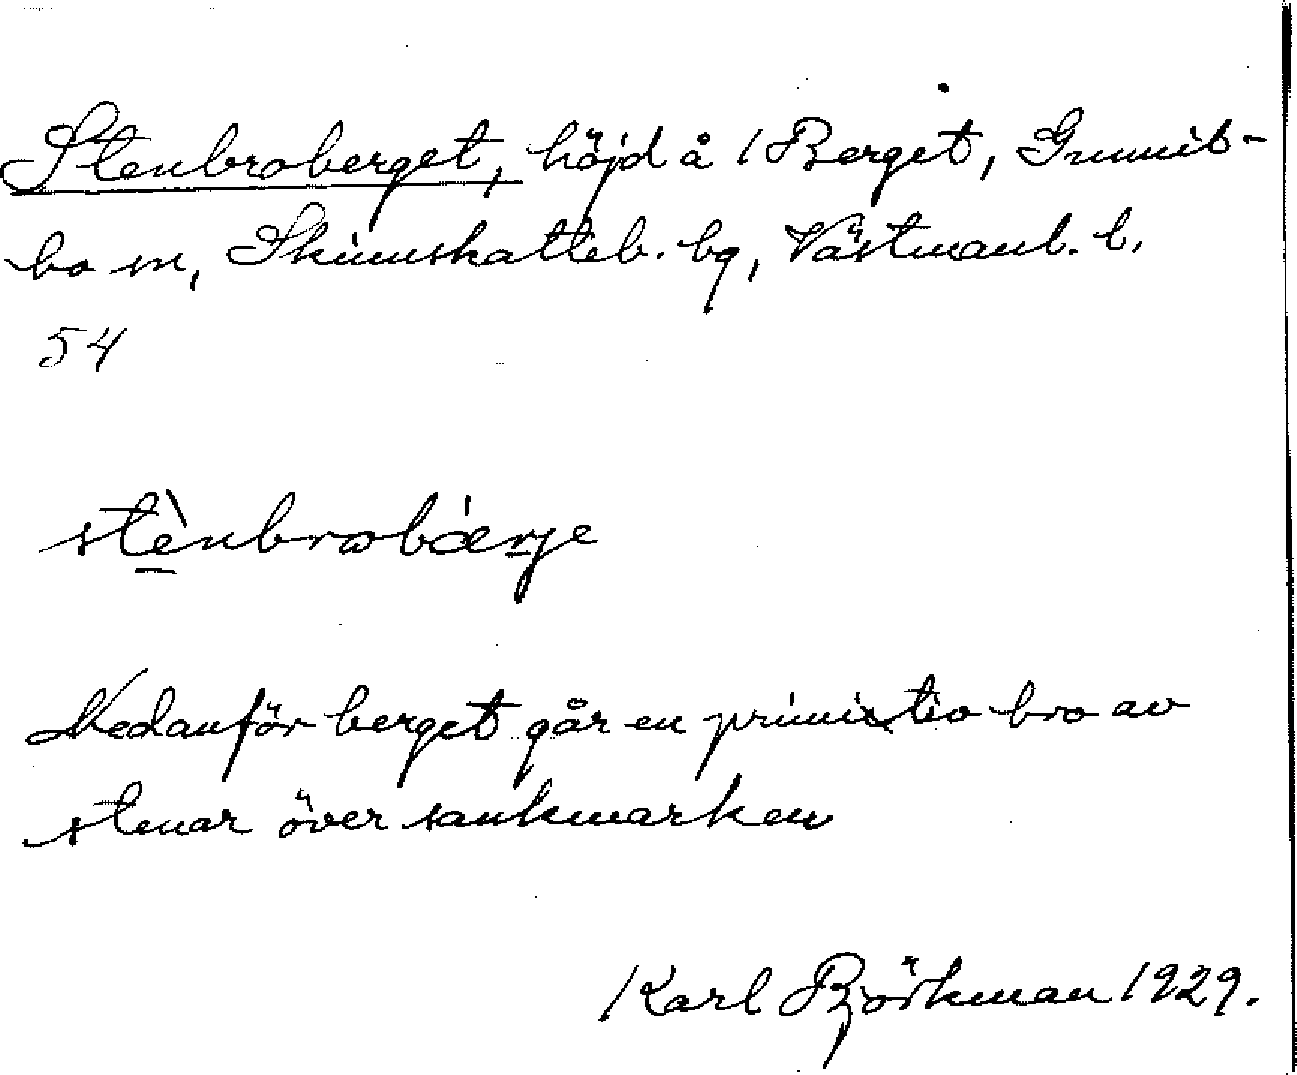 Stenbroberget, höjd å 1 Berget, Gunnils-
bo sn, Skinnskatteb. bg, Västmanl. l.
54
stènbrobǽrje
Nedanför berget går en primitiv bro av
stenar över sankmarken
Karl Björkman 1929.